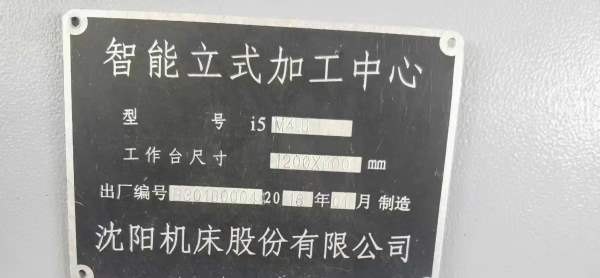 智能立式加工中心
型 号 i5
工作台尺寸 mm
出厂编号 2018年01月 制造
沈阳机床股份有限公司